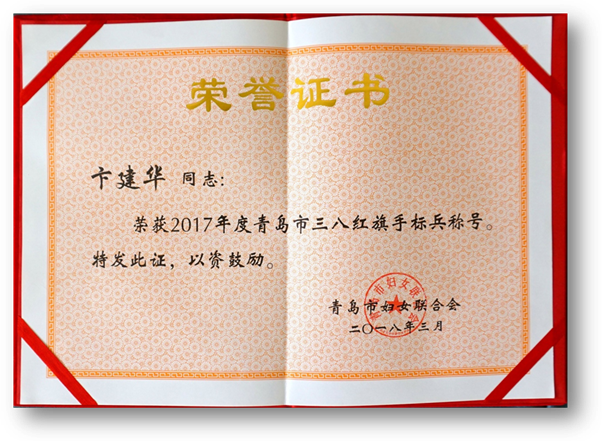 荣誉证书
卞建华 同志：
荣获2017年度青岛市三八红旗手标兵称号。
特发此证，以资鼓励。
青岛市妇女联合会
二〇一八年三月